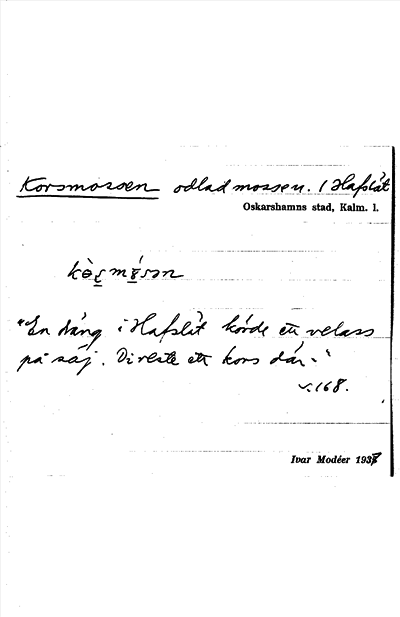 Korsmossen odlad mossen. I Hafslåt
Oskarshamns stad, Kalm. l.
"En dräng i Hafslåt körde ett velass
på säj. Di reste ett kors där."
s. 168.
Ivar Modéer 1937